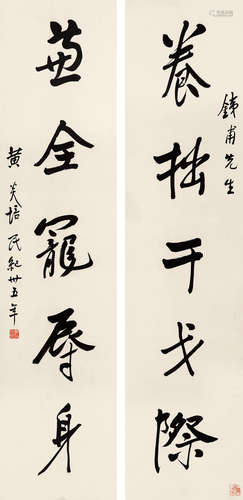 銕甫先生
養拙干戈際
全寵辱身
黃炎培 民紀卅五年